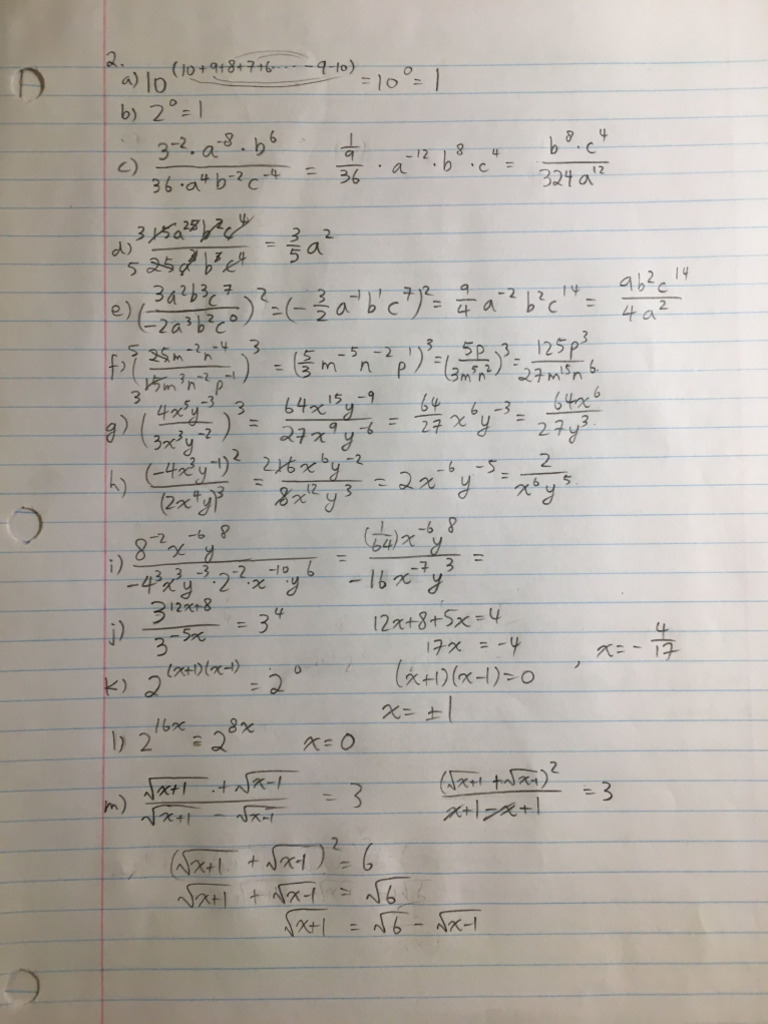 2.
a) 10^(10+9+8+7+6.....-9-10) = 10^0 = 1
b) 2^0 = 1
c) (3^-2 · a^-8 · b^6)/(36 · a^4 b^-2 c^-4) = (1/9)/36 · a^-12 · b^8 · c^4 = (b^8 · c^4)/(324a^12)
d) = 3/5 a^2
e) ((3a^2b^3c^7)/(-2a^3b^2c^0))^2 = (-3/2 a^-1 b^1 c^7)^2 = 9/4 a^-2 b^2c^14 = (9b^2c^14)/(4a^2)
f) 5 ((25m^-2n^-4)/(15m^3n^-2p^-1))^3 3 = (5/3 m^-5 n^-2 p^1)^3 = (5p/(3m^5n^2))^3 = (125p^3)/(27m^15n^6)
g) ((4x^5y^-3)/(3x^3y^-2))^3 = (64x^15y^-9)/(27x^9y^-6) = 64/27 x^6y^-3 = (64x^6)/(27y^3)
h) ((-4x^3y^-1)^2)/((2x^4y)^3) = (2 16x^6y^-2)/(8x^12y^3) = 2x^-6 y^-5 = 2/(x^6y^5)
i) (8^-2 x^-6 y^8)/(-4^3x^3y^-3 · 2^-2 · x^-10 · y^6) = ((1/64)x^-6y^8)/(-16x^-7y^3) =
j) (3^(12x+8))/(3^-5x) = 3^4 12x+8+5x=4
17x = -4 , x = -4/17
k) 2^((x+1)(x-1)) = 2^0 (x+1)(x-1)=0
x = ±1
l) 2^16x = 2^8x x=0
m) (√x+1 + √x-1)/(√x+1 - √x-1) = 3 ((√x+1 + √x-1)^2)/(x+1-x+1) = 3
(√x+1 + √x-1)^2 = 6
√x+1 + √x-1 = √6
√x+1 = √6 - √x-1